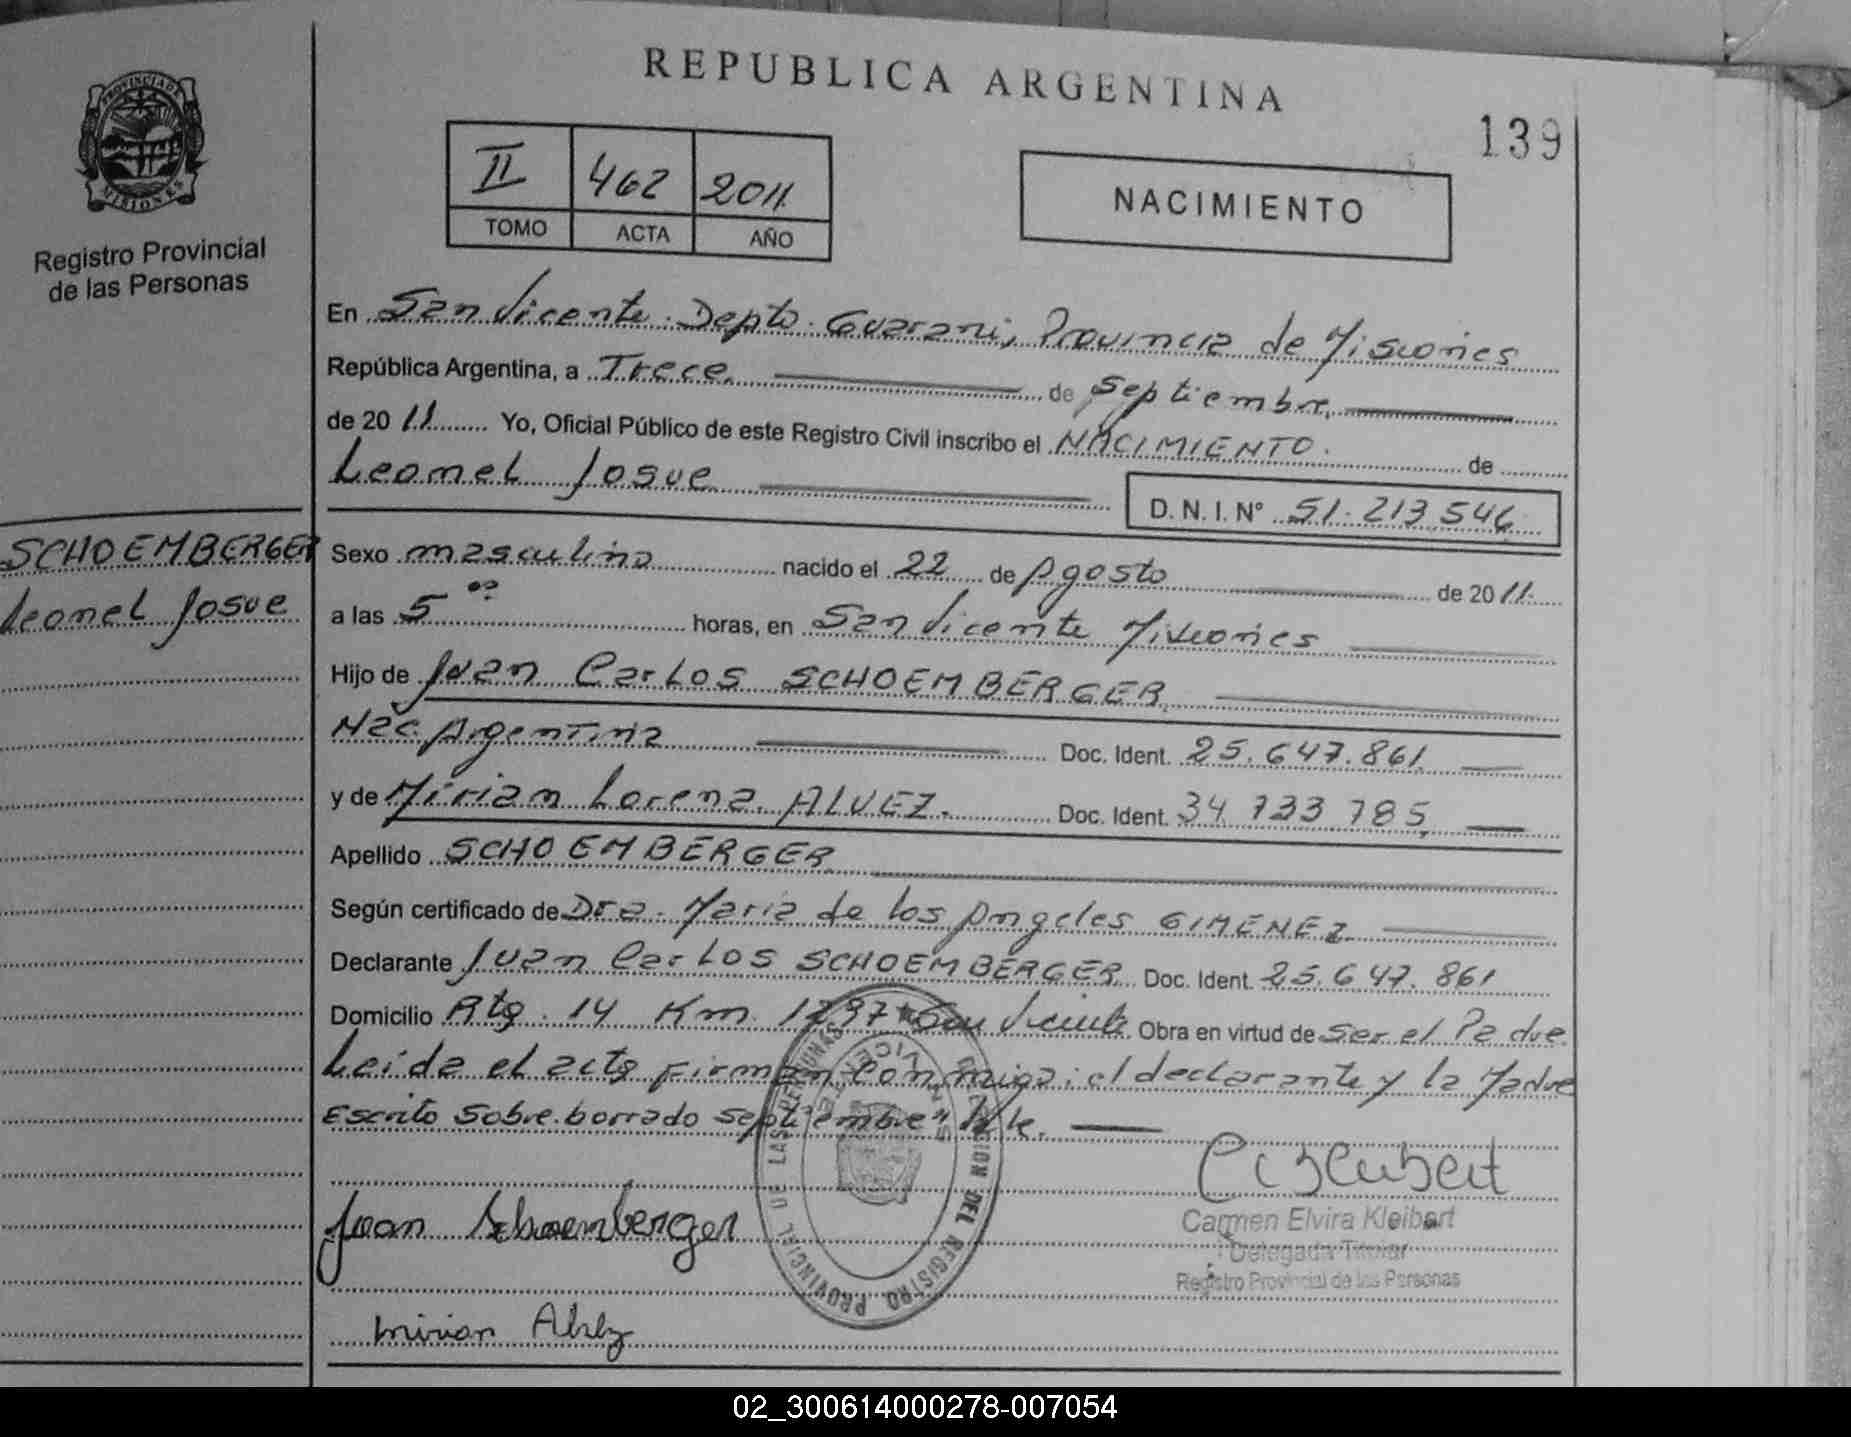 REPUBLICA ARGENTINA
139
PROVINCIA DE MISIONES
Registro Provincial
de las Personas
II 462 2011
TOMO ACTA AÑO
NACIMIENTO
En San Vicente. Depto. Guarani, Provincia de Misiones
República Argentina, a Trece de Septiembre
de 2011 Yo, Oficial Público de este Registro Civil inscribo el NACIMIENTO. de
Leonel Josue
D. N. I. N° 51.213.546
SCHOEMBERGER
Leonel Josue
Sexo masculino nacido el 22 de Agosto de 2011.
a las 5 horas, en San Vicente Misiones
Hijo de Juan Carlos SCHOEMBERGER
Nac. Argentina Doc. Ident. 25.647.861
y de Mirian Lorena ALVEZ. Doc. Ident. 34 733 785
Apellido SCHOEMBERGER
Según certificado de Dra. Maria de los Angeles GIMENEZ
Declarante Juan Carlos SCHOEMBERGER Doc. Ident. 25.647.861
Domicilio Rta. 14 Km 1297 San Vicente Obra en virtud de Ser el Padre.
Leida el acta firman conmigo; el declarante y la Madre
Escrito sobre borrado septiembre" Vale.
Juan Schoemberger
Carmen Elvira Kleibert
Delegada Titular
Registro Provincial de las Personas
Mirian Alvez
02_300614000278-007054